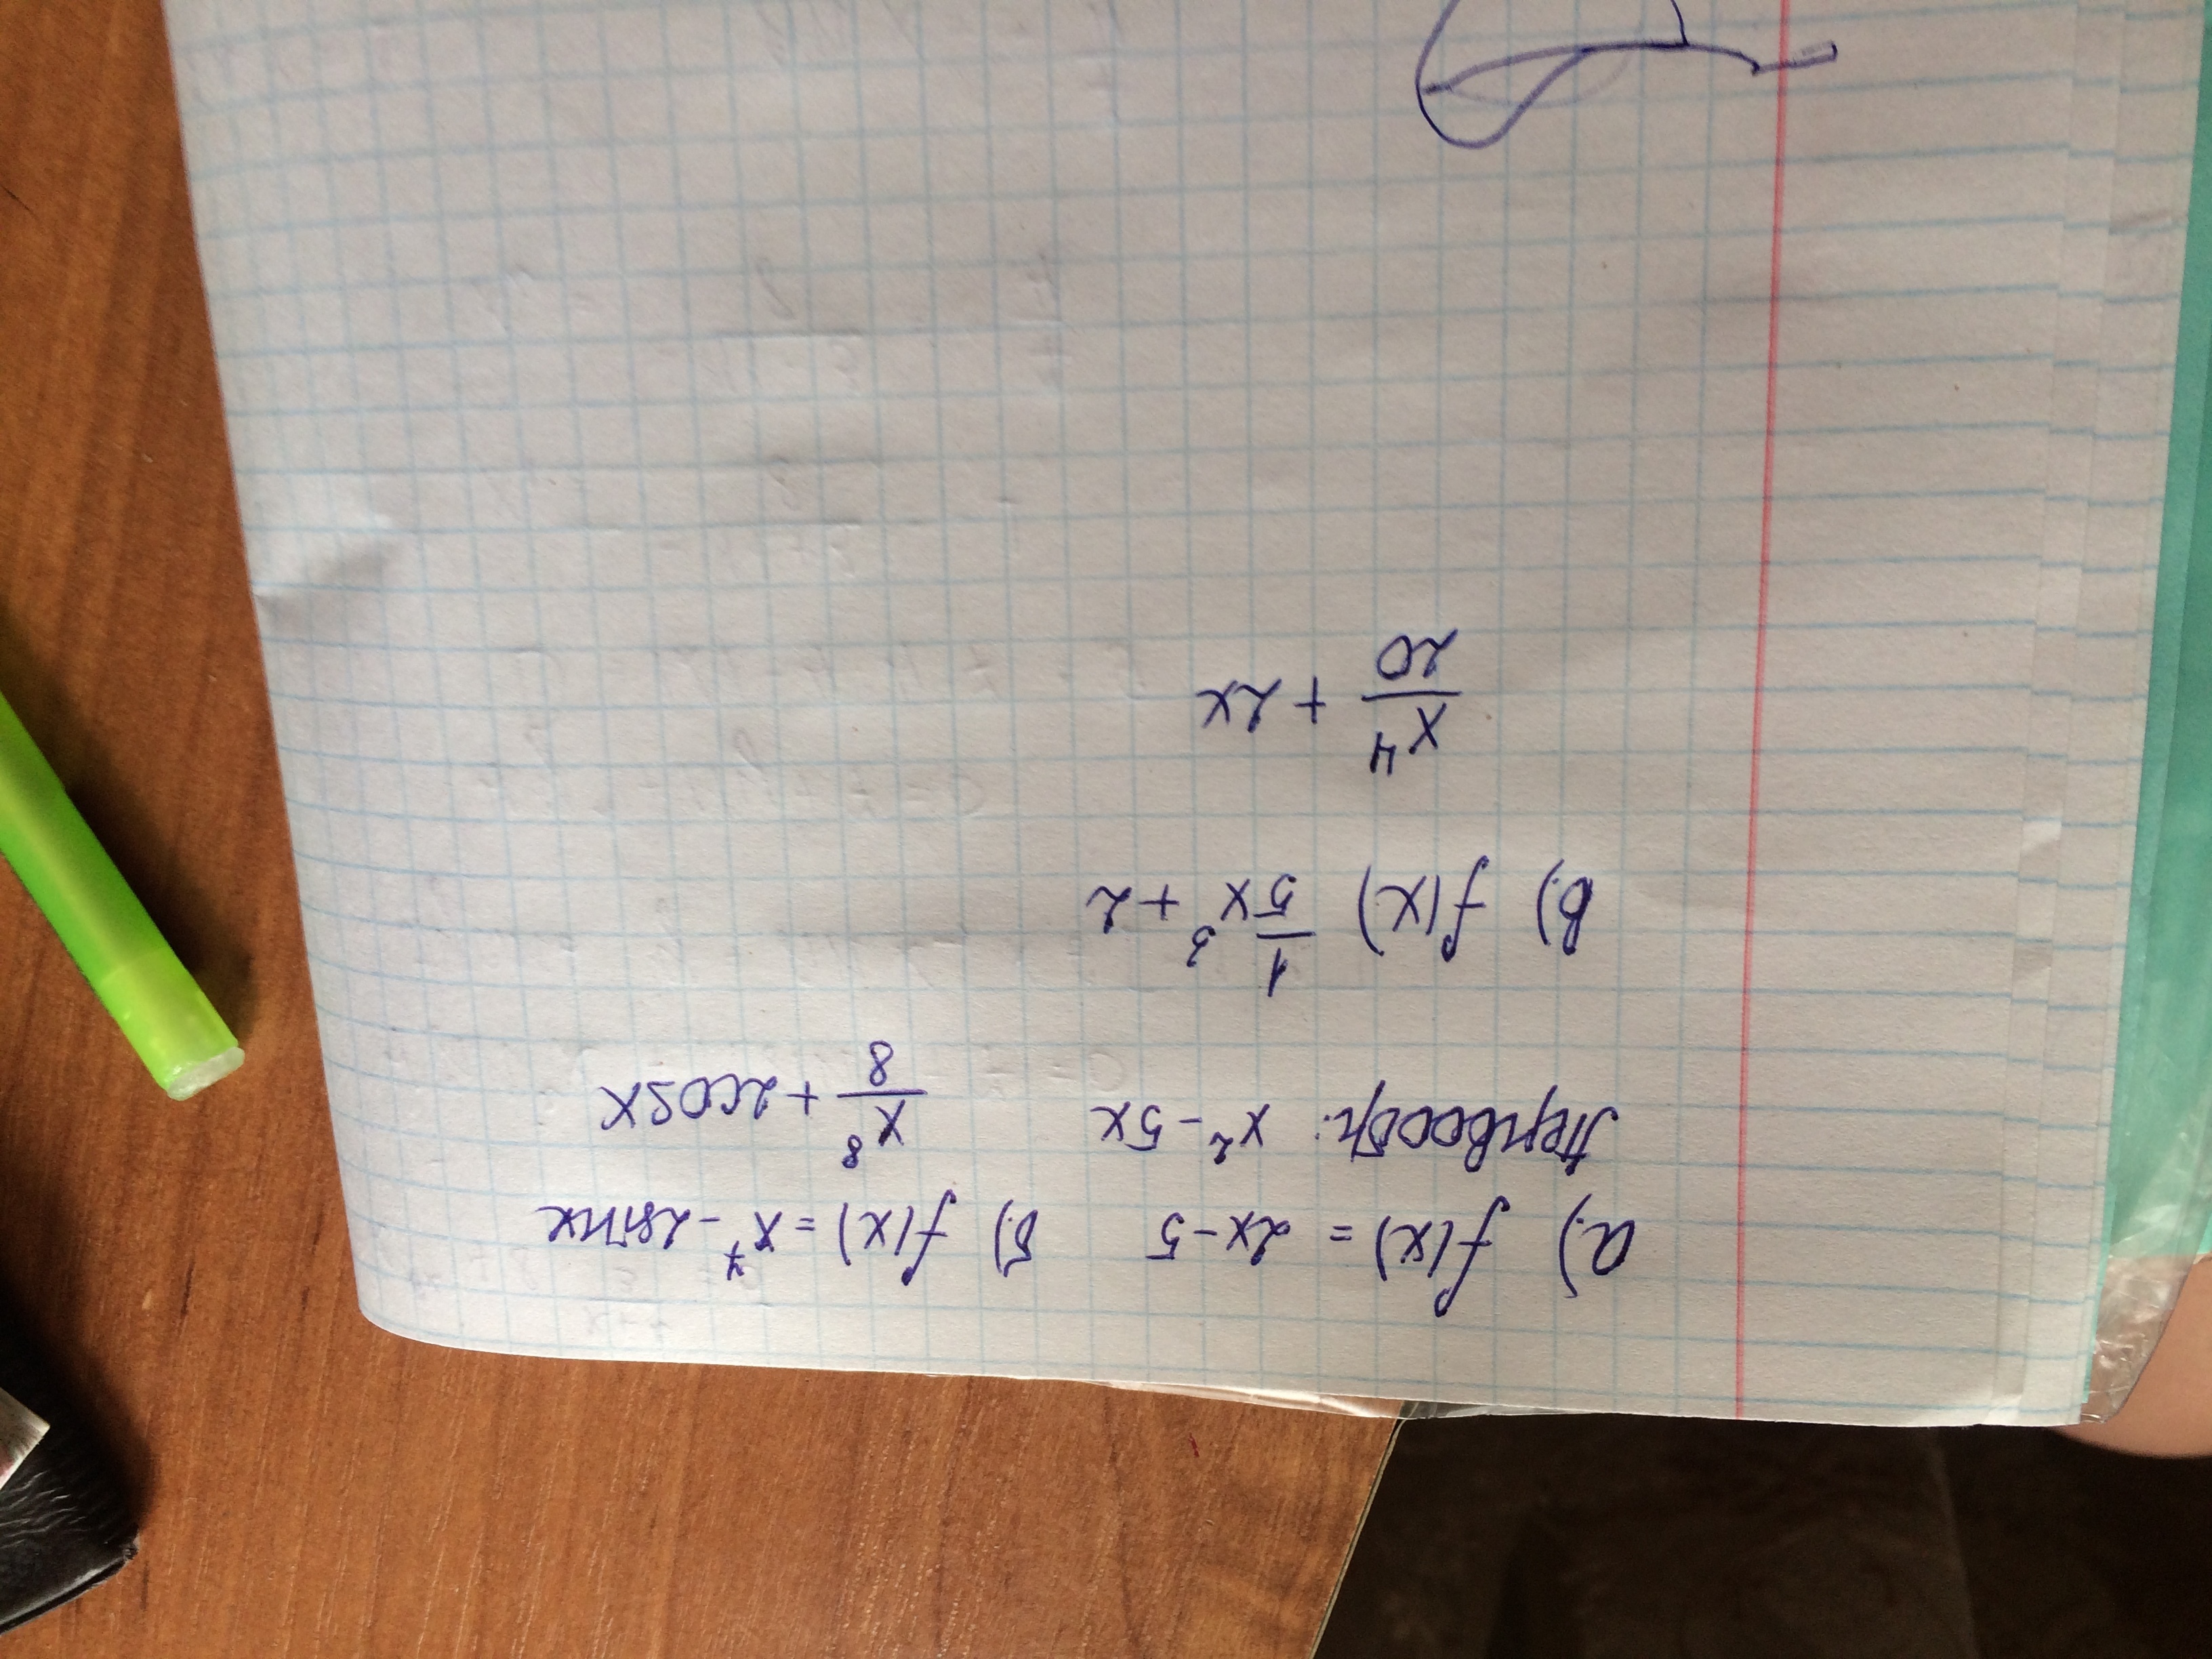 а.) f(x) = 2x-5 б.) f(x) = x⁷-2sinx
Первообр.: x²-5x x⁸/8 + 2cosx
в.) f(x) 1/5x³ + 2
x⁴/20 + 2x